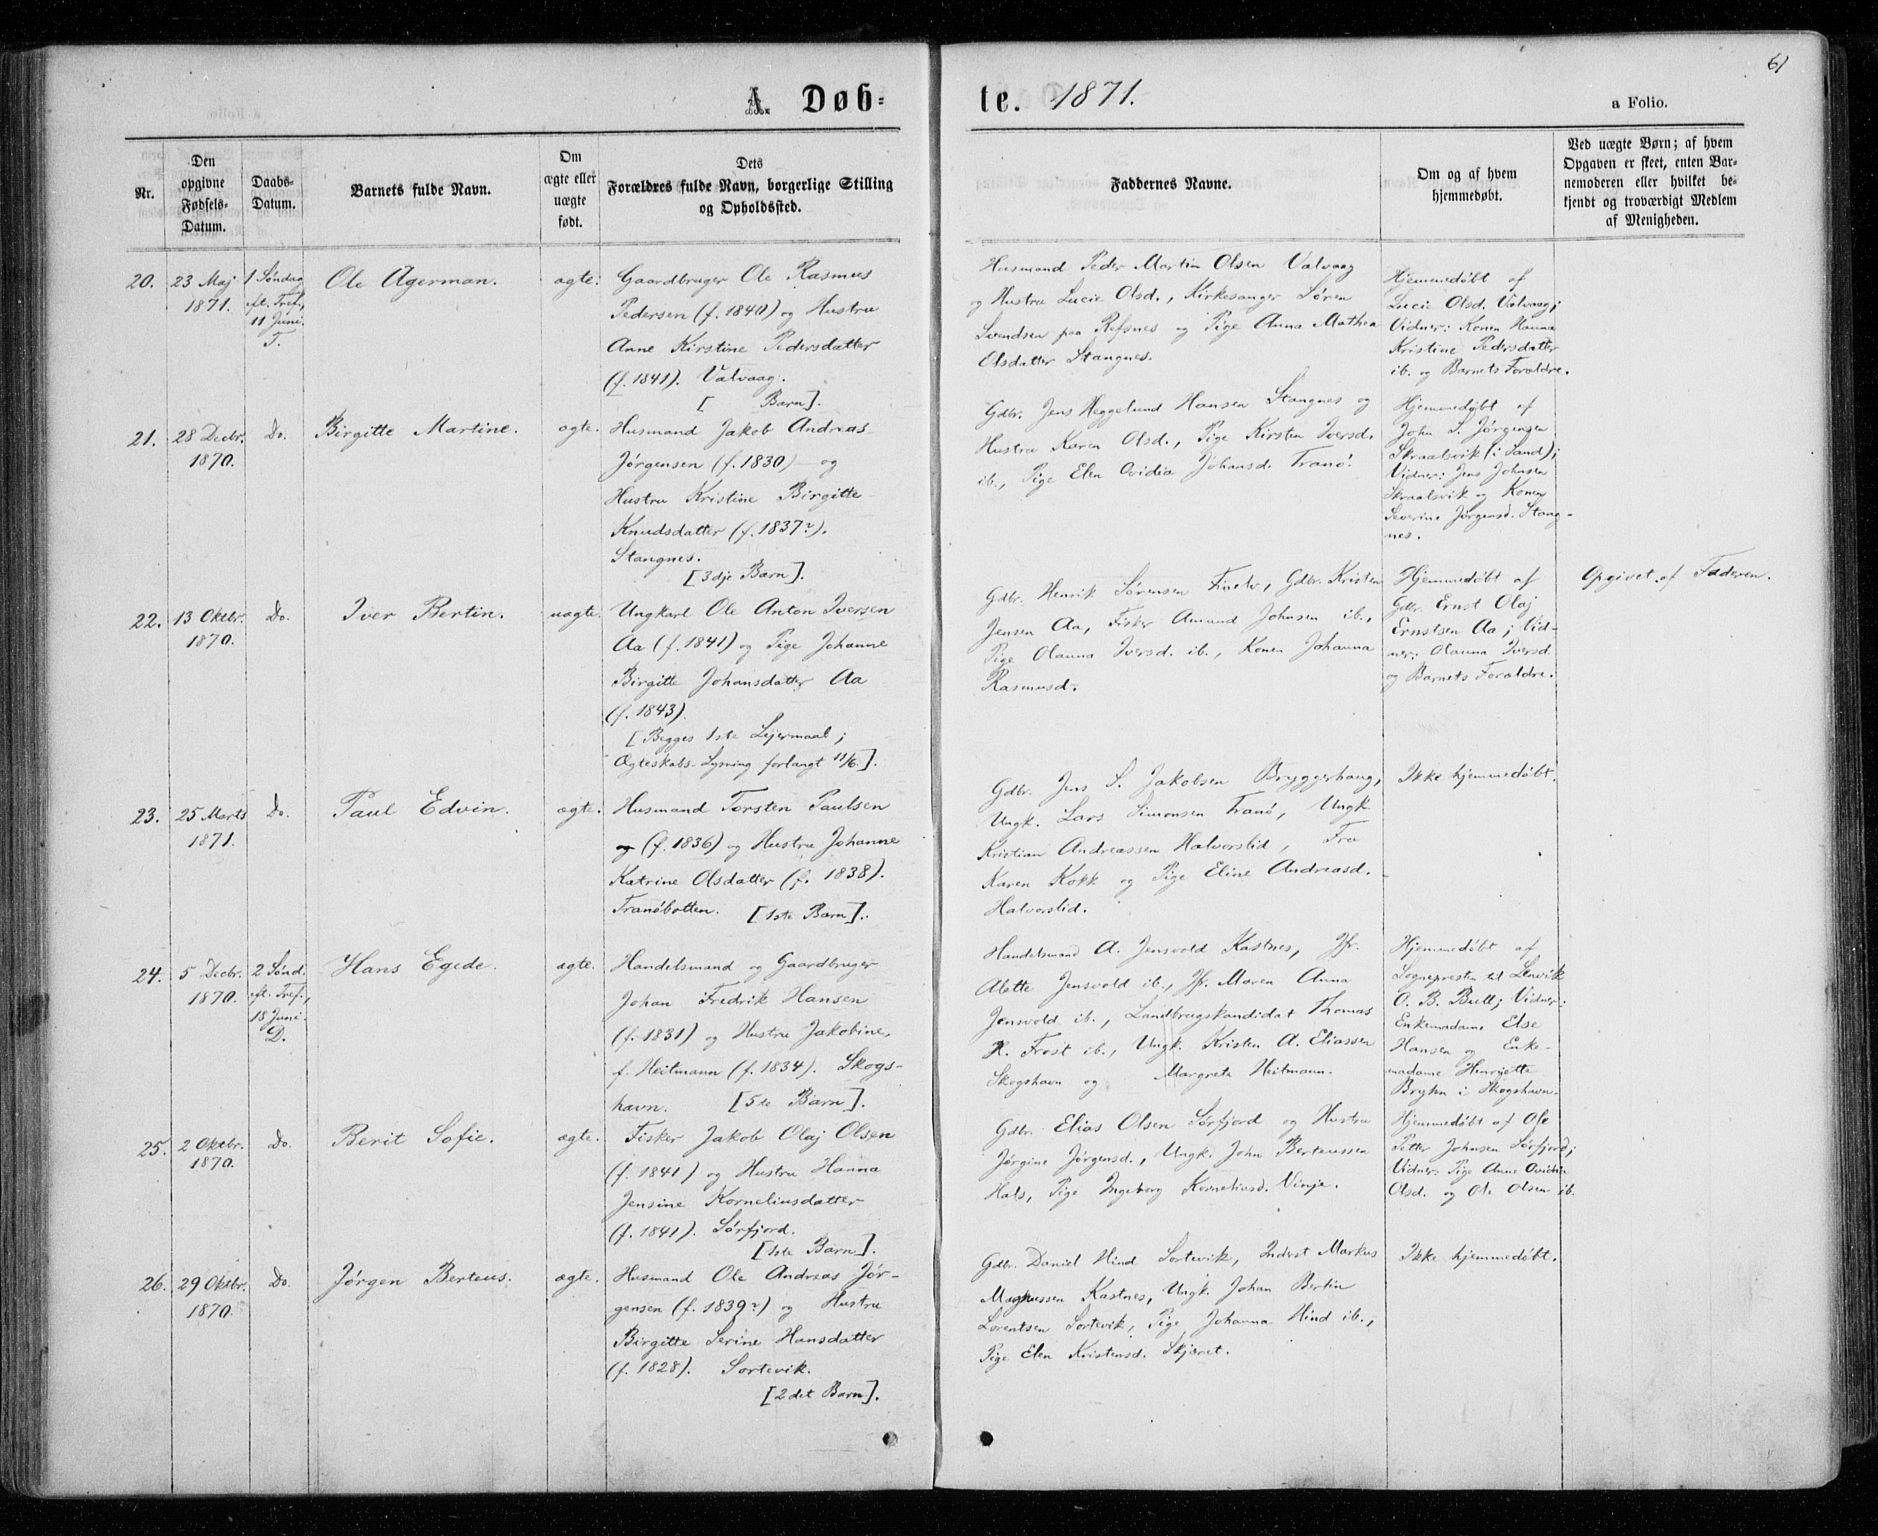 61
A. Døb-
te. 1871.
a Folio.
Nr.
Den opgivne Fødsels-Datum.
Daabs-Datum.
Barnets fulde Navn.
Om ægte eller uægte født.
Dets Forældres fulde Navn, borgerlige Stilling og Opholdssted.
Faddernes Navne.
Om og af hvem hjemmedøbt.
Ved uægte Børn; af hvem Opgaven er skeet, enten Barnemoderen eller hvilket bekjendt og troværdigt Medlem af Menigheden.
20.
23 Maj
1871.
1 Søndag
eft. Tref.,
11 Juni.
T.
Ole Agerman.
ægte.
Gaardbruger Ole Rasmus
Pedersen (f. 1840) og Hustru
Anne Kirstine Pedersdatter
(f. 1841). Valvaag.
[ Barn].
Husmand Peder Martin Olsen Valvaag
og Hustru Lucie Olsd., Kirkesanger Søren
Svendsen paa Refsnes og Pige Anna Mathea
Olsdatter Stangnes.
Hjemmedøbt af
Lucie Olsd. Valvaag;
Vidner: Konen Hanna
Kristine Pedersdatter
ib. og Barnets Forældre.
21.
28 Decbr.
1870.
Do.
Birgitte Martine.
ægte.
Husmand Jakob Andreas
Jørgensen (f. 1830) og
Hustru Kristine Birgitte
Knudsdatter (f. 1837?).
Stangnes.
[3dje Barn].
Gdbr. Jens Heggelund Hansen Stangnes og
Hustru Karen Olsd., Pige Kirsten Iversd.
ib., Pige Elen Ovidia Johansd. Tranø.
Hjemmedøbt af
John S. Jørgensen
Skraalsvik (i Sand);
Vidner: Jens Johnsen
Skraalsvik og Konen
Severine Jørgensd. Stang-
nes.
22.
13 Oktbr.
1870.
Do.
Iver Bertin.
uægte.
Ungkarl Ole Anton Iversen
Aa (f. 1841) og Pige Johanne
Birgitte Johansdatter Aa
(f. 1843).
[Begges 1ste Lejermaal;
Ægteskabs-Lysning forlangt 11/6].
Gdbr. Henrik Sørensen Gdbr. Kristen
Jensen Aa, Fisker Amund Johnsen ib.,
Pige Olauna Iversd. ib., Konen Johanna
Rasmusd.
Hjemmedøbt af
Gdbr. Ernst Olaj
Ernstsen Aa; Vid-
ner: Olauna Iversd.
og Barnets Forældre.
Opgivet af Faderen.
23.
25 Marts
1871.
Do.
Paul Edvin.
ægte.
Husmand Torsten Paulsen
(f. 1836) og Hustru Johanne
Katrine Olsdatter (f. 1838).
Tranøbotten. [1ste Barn].
Gdbr. Jens S. Jakobsen Bryggerhaug,
Ungk. Lars Simonsen Tranø, Ungk.
Kristian Andreassen Halvorslid, Fru
Karen Kokk og Pige Eline Andreasd.
Halvorslid.
Ikke hjemmedøbt.
24.
5 Decbr.
1870.
2 Sønd.
eft. Tref.,
18 Juni.
D.
Hans Egede.
ægte.
Handelsmand og Gaardbruger
Johan Fredrik Hansen
(f. 1831) og Hustru Jakobine,
f. Heitmann (f. 1834). Skogs-
havn. [5te Barn].
Handelsmand A. Jensvold Kastnes, Jfr.
Alette Jensvold ib., Jfr. Maren Anna
Jensvold ib., Landbrugskandidat Thomas
R. Frost ib., Ungk. Kristen A. Eliassen
Skogshavn og Margrete Heitmann.
Hjemmedøbt af
Sognepresten til Lenvik
O. B. Bull; Vidner:
Enkemadame Else
Hansen og Enke-
madame Henrijette
Brythn i Skogshavn.
25.
2 Oktbr.
1870.
Do.
Berit Sofie.
ægte.
Fisker Jakob Olaj Olsen
(f. 1841) og Hustru Hanna
Jensine Korneliusdatter
(f. 1841). Sørfjord.
[1ste Barn].
Gdbr. Elias Olsen Sørfjord og Hustru
Jørgine Jørgensd., Ungk. John Berteussen
Hals, Pige Ingeborg Korneliusd. Vinje.
Hjemmedøbt af Ole
Petter Johnsen Sørfjord;
Vidner: Pige Anne Ovidia
Olsd. og Ole Olsen ib.
26.
29 Oktbr.
1870.
Do.
Jørgen Berteus.
ægte.
Husmand Ole Andreas Jør-
gensen (f. 1839?) og Hustru
Birgitte Serine Hansdatter
(f. 1828). Sortevik.
[2det Barn].
Gdbr. Daniel Hind Sortevik, Inderst Markus
Magnussen Kastnes, Ungk. Johan Bertin
Lorentsen Sortevik, Pige Johanna Hind ib.,
Pige Elen Kristensd. Skjæret.
Ikke hjemmedøbt.